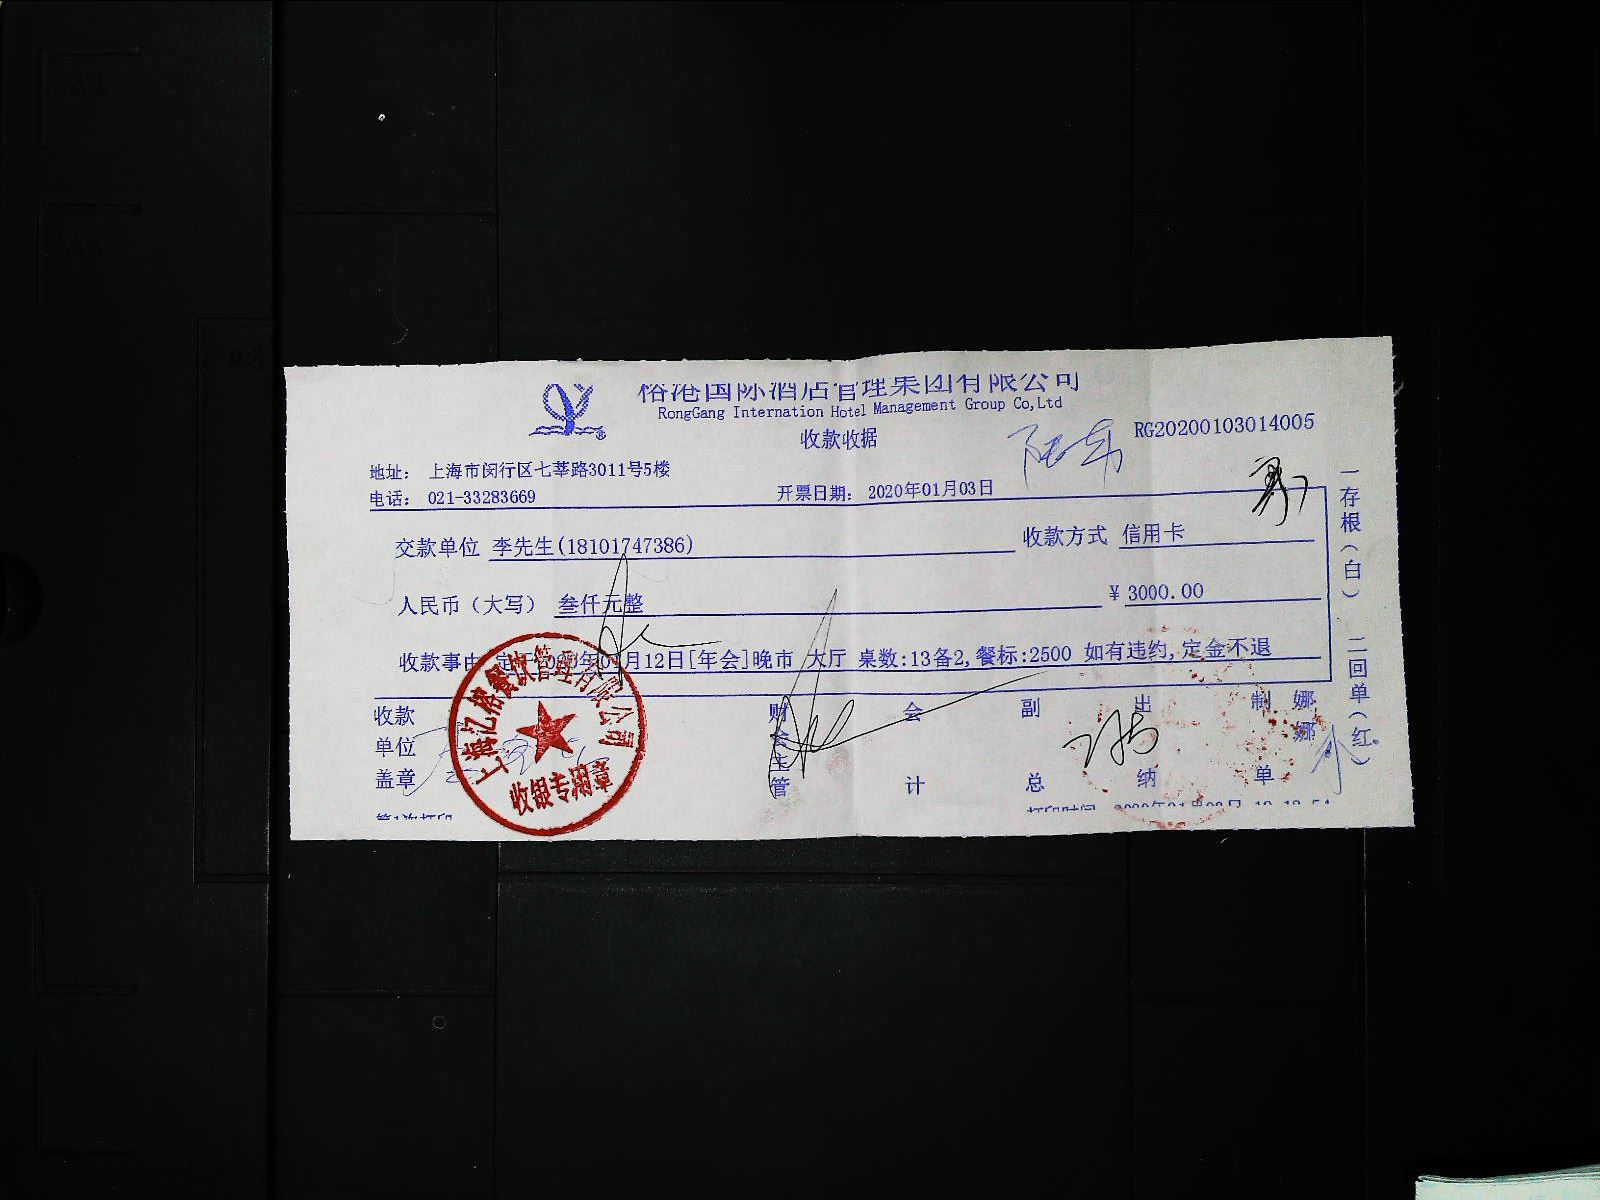 榕港国际酒店管理集团有限公司
RongGang Internation Hotel Management Group Co,Ltd
收款收据
RG20200103014005
地址： 上海市闵行区七莘路3011号5楼
电话： 021-33283669
开票日期： 2020年01月03日
交款单位 李先生(18101747386)
收款方式 信用卡
人民币（大写） 叁仟元整
￥3000.00
收款事由 定于2020年01月12日[年会]晚市 大厅 桌数:13备2,餐标:2500 如有违约,定金不退
收款单位盖章
财会主管
会计
副总
出纳
制单
娜娜
一存根（白） 二回单（红）
上海亿榕餐饮管理有限公司
收银专用章
第1次打印
打印时间
A4
A5
A6